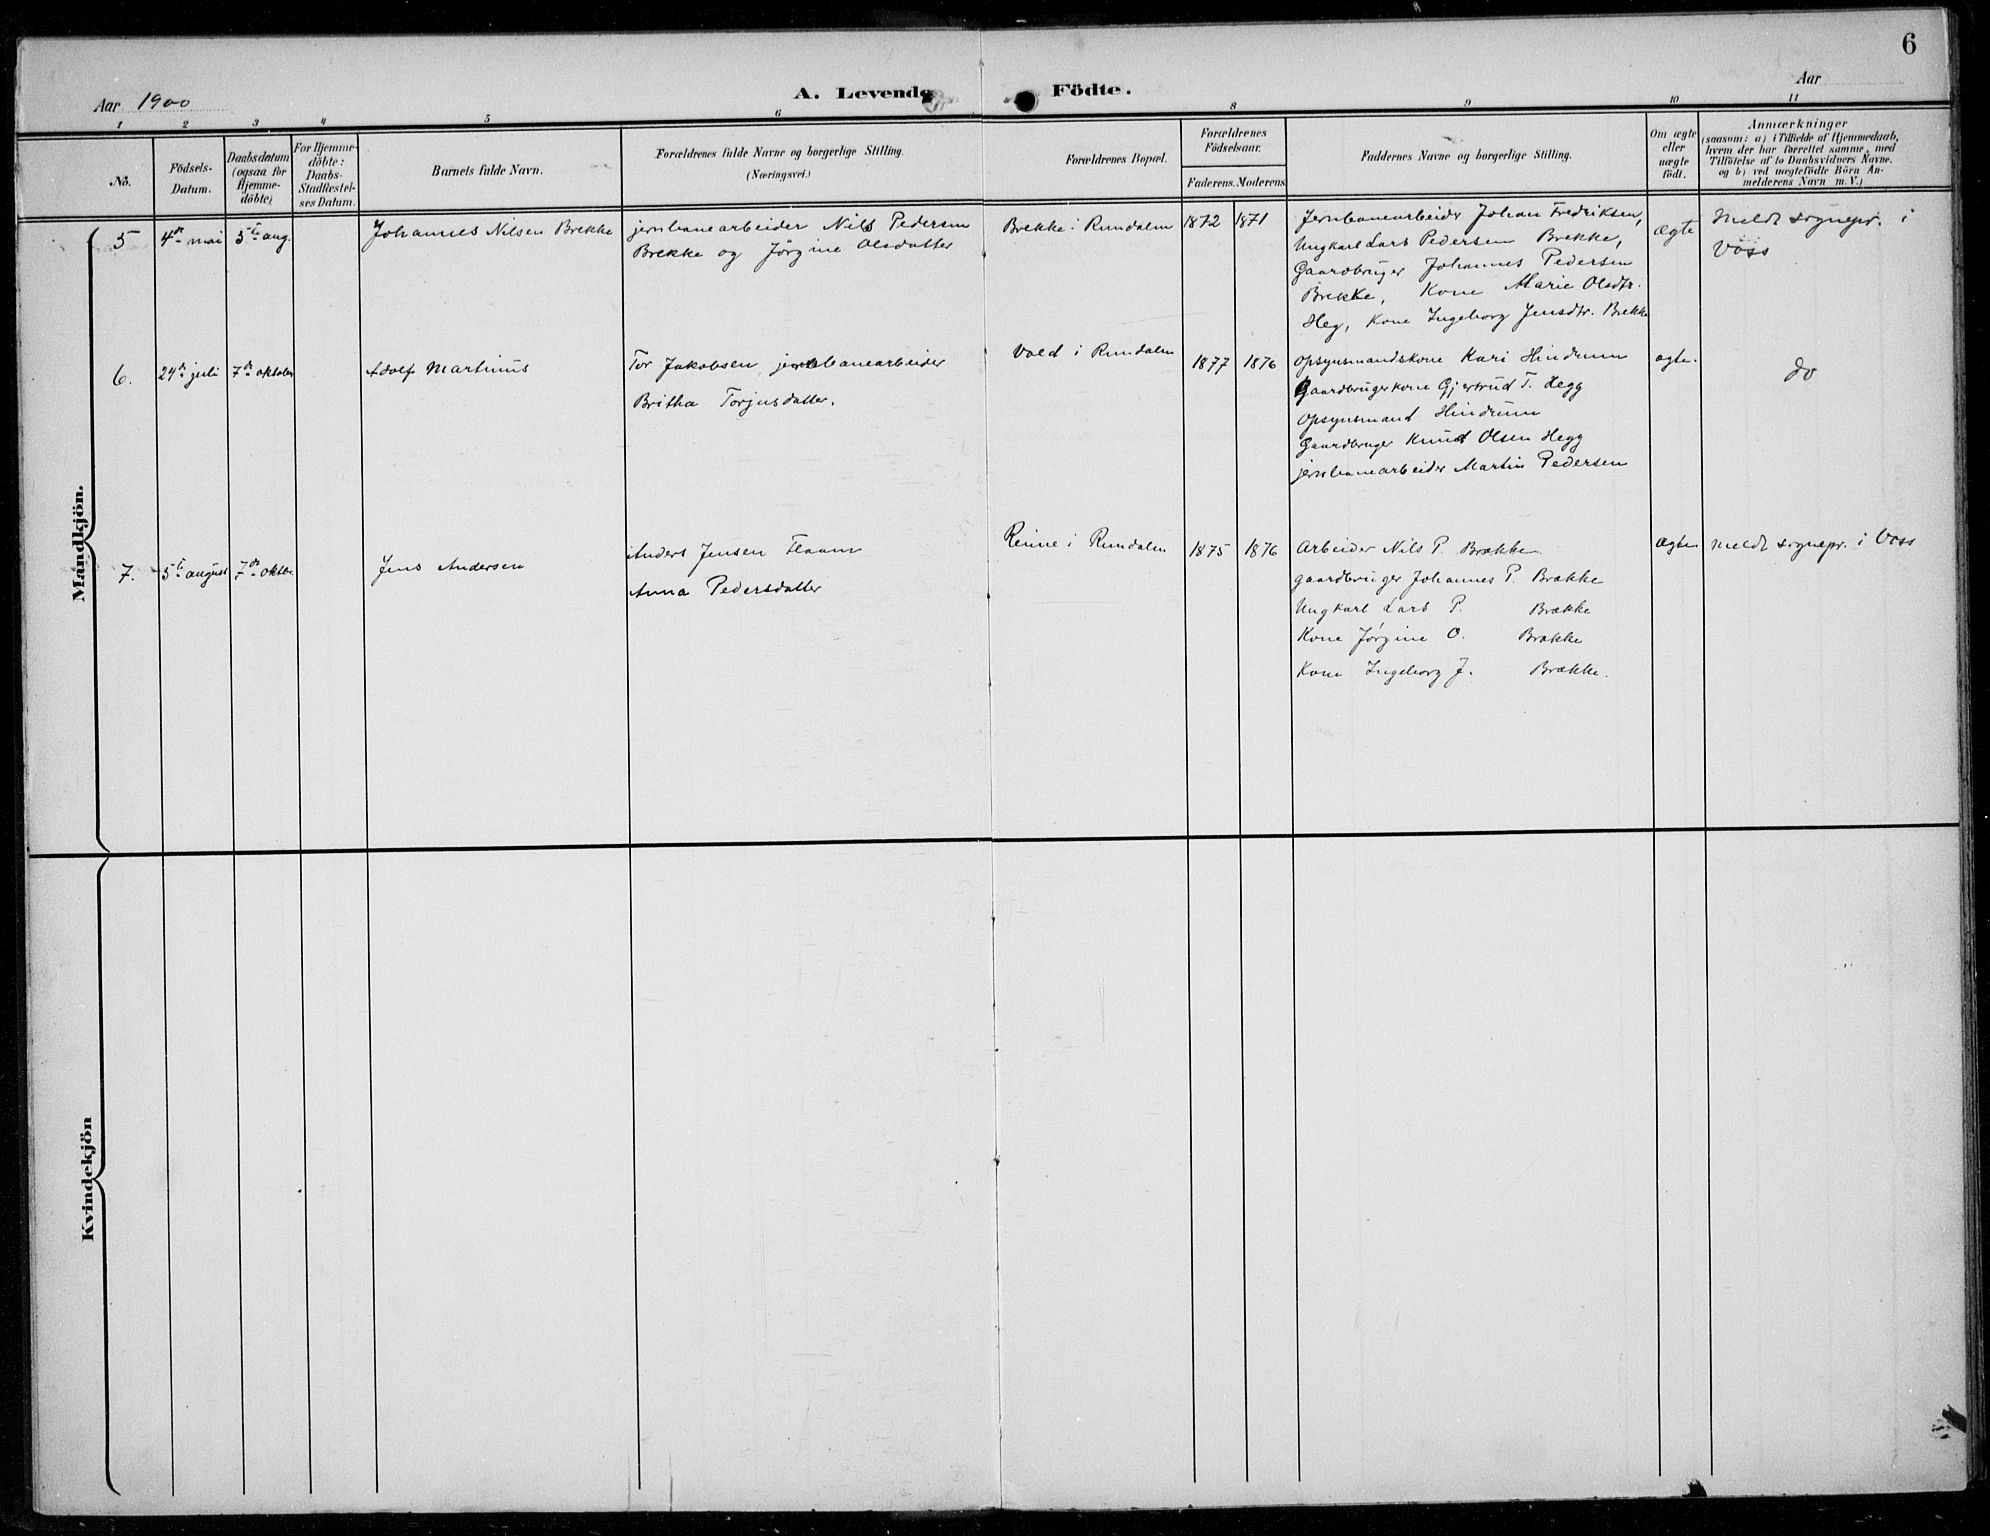 6
Aar 1900
A. Levende Födte.
Aar
1 2 3 4 5 6 8 9 10 11
No.
Födsels-
Datum.
Daabsdatum
(ogsaa for
Hjemme-
döbte)
For Hjemme-
döbte:
Daabs-
Stadfæstel-
ses Datum.
Barnets fulde Navn.
Forældrenes fulde Navne og borgerlige Stilling.
(Næringsvei.)
Forældrenes Bopæl.
Forældrenes
Födselsaar.
Faderens. Moderens
Faddernes Navne og borgerlige Stilling.
Om ægte
eller
uægte
födt.
Anmærkninger
(saasom: a) i Tilfælde af Hjemmedaab,
hvem der har forrettet samme, med
Tilföielse af to Daabsvidners Navne.
og b) ved uægtefödte Börn An-
melderens Navn m. V.)
Mandkjön.
5 4de mai 5te aug. Johannes Nilsen Brekke
jernbanearbeider Nils Pedersen
Brekke og Jørgine Olsdatter
Brekke i Rundalen 1872 1871
Jernbanearbeider Johan Fredriksen,
Ungkarl Lars Pedersen Brekke,
Gaardbruger Johannes Pedersen
Brekke, Kone Marie Olsdtr.
Heg, Kone Ingeborg Jensdtr. Brekke
Ægte
Meldt sognepr. i
Voss
6. 24de juli 7de oktober Adolf Martinus
Tor Jakobsen, jernbanearbeider
Britha Torjusdatter.
Vold i Rundalen 1877 1876
Opsynsmandskone Kari Hindrum
Gaardbrugerkone Gjertrud T. Hegg
Opsynsmand Hindrum
Gaardbruger Knud Olsen Hegg
jernbanearbeider Martin Pedersen
ægte.
do
7. 5te august 7de oktbr. Jens Andersen
Anders Jensen Flaam
Anna Pedersdatter
Reime i Rundalen 1875 1876
Arbeider Nils P. Brække.
gaardbruger Johannes P. Brække
Ungkarl Lars P. Brække
Kone Jørgine O. Brække
Kone Ingeborg J. Brække.
Ægte
Meldt sognepr. i Voss
Kvindekjön